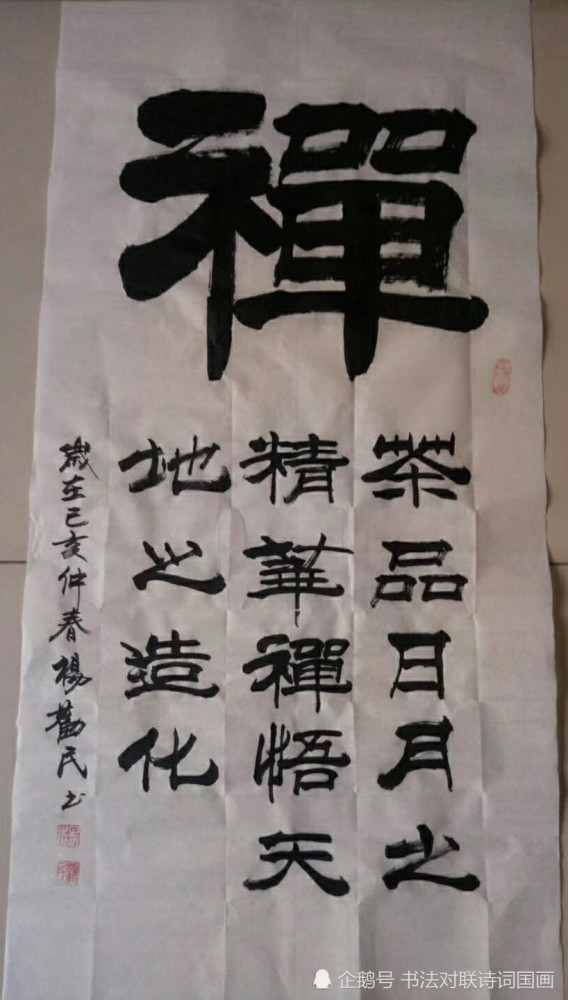 禪
茶品日月之
精華禪悟天
地之造化
歲在己亥仲春楊勸民书
企鹅号 书法对联诗词国画